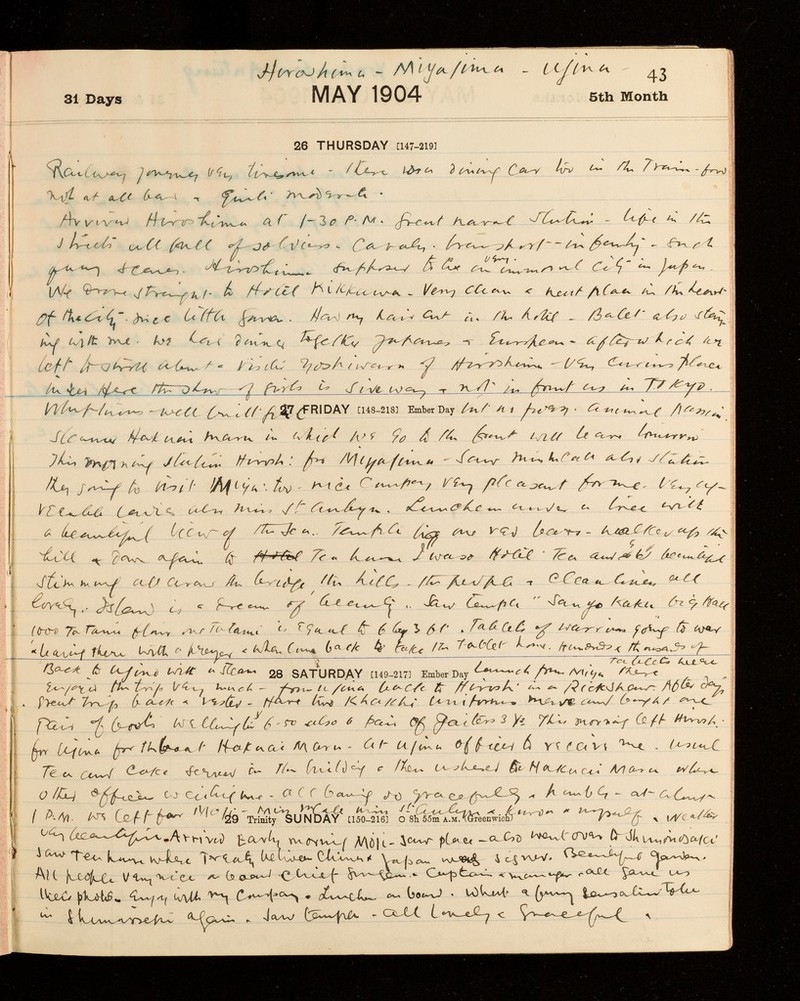 Hiroshima - Miyajima - Ujina - 43
31 Days MAY 1904 5th Month
26 THURSDAY [147-219]
Railway journey very tiresome - there was a dining Car too in the Train - food
not at all bad & quite moderate.
Arrived Hiroshima at 1-30 P.M. Great naval Station - life in the
Streets all full of soldiers - Cavalry - transport - infantry - Such
scenes. Hiroshima supposed to be very immoral City in Japan.
We drove straight to Hotel Kikkawa - Very clean & neat place in the heart
of the City - nice little garden. Had my hair cut in the hotel - Balet also stay-
ing with me. We had dinner together Japanese & European - after which we
left to stroll about & visit Yoshiwara of Hiroshima - Very curious place
Here the show of girls is & not in front as in Tokyo.
well built 27 FRIDAY [148-218] Ember Day but no
Steamer Hakuai Maru in which we go to the front will leave tomorrow
This morning station Hirosh: for Miyajima - Saw also station
they going to visit Miya: too - nice Company very pleasant for me. Very ag-
reeable ladies also Miss St Aubyn. Luncheon under a tree with
a beautiful view of the Sea. Temple big one red - walked up the
hill & down again to Tea house I was Hotel Tea and beautiful
all around the bridge, the hills - the people & cleanliness all
lovely. Island is a dream of beauty. Saw temple "Sanjo Kaku big Hall
1000 Tatami floor one Tatami is equal to 6 by 3 ft. Tablets of warriors going to war
& leaving there with a prayer & when come back to take the tablet home. Hundreds & thousands of
tablets were there
Back to Ujina with a steam 28 SATURDAY [149-217] Ember Day Launch from Miya
Enjoyed the trip very much - from Ujina back to Hirosh: in a Rickshaw After days
great trip back & rested - Have two Khakki uniforms made and bought one
Pair of boots Wellingtons 6-50 also a pair of Gaiters 3 Ye This morning left Hirosh:
for Ujina for the boat Hakuai Maru - at Ujina officer to receive me. usual
Tea and Cake served in the building & then ushered to Hakuai Maru where
other officers waiting me - all bowing so gracefully & humbly - at about
1 P.M. we left for Moji - Miss St Aubyn & myself & weather
29 Trinity SUNDAY [150-216] ○ 8h 55m A.M. (Greenwich)
very beautiful - Arrived Early morning Moji - Saw place - also went over to Shimonosaki
Saw Tea house where Treaty between China & Japan was signed. Beautiful garden.
All people very nice on board Chief Surgeon - Captain & manager - all gave us
their photos. Enjoy with my Company - Luncheon on board. What a funny sensation to be
in again. Saw temple - all lovely & graceful.